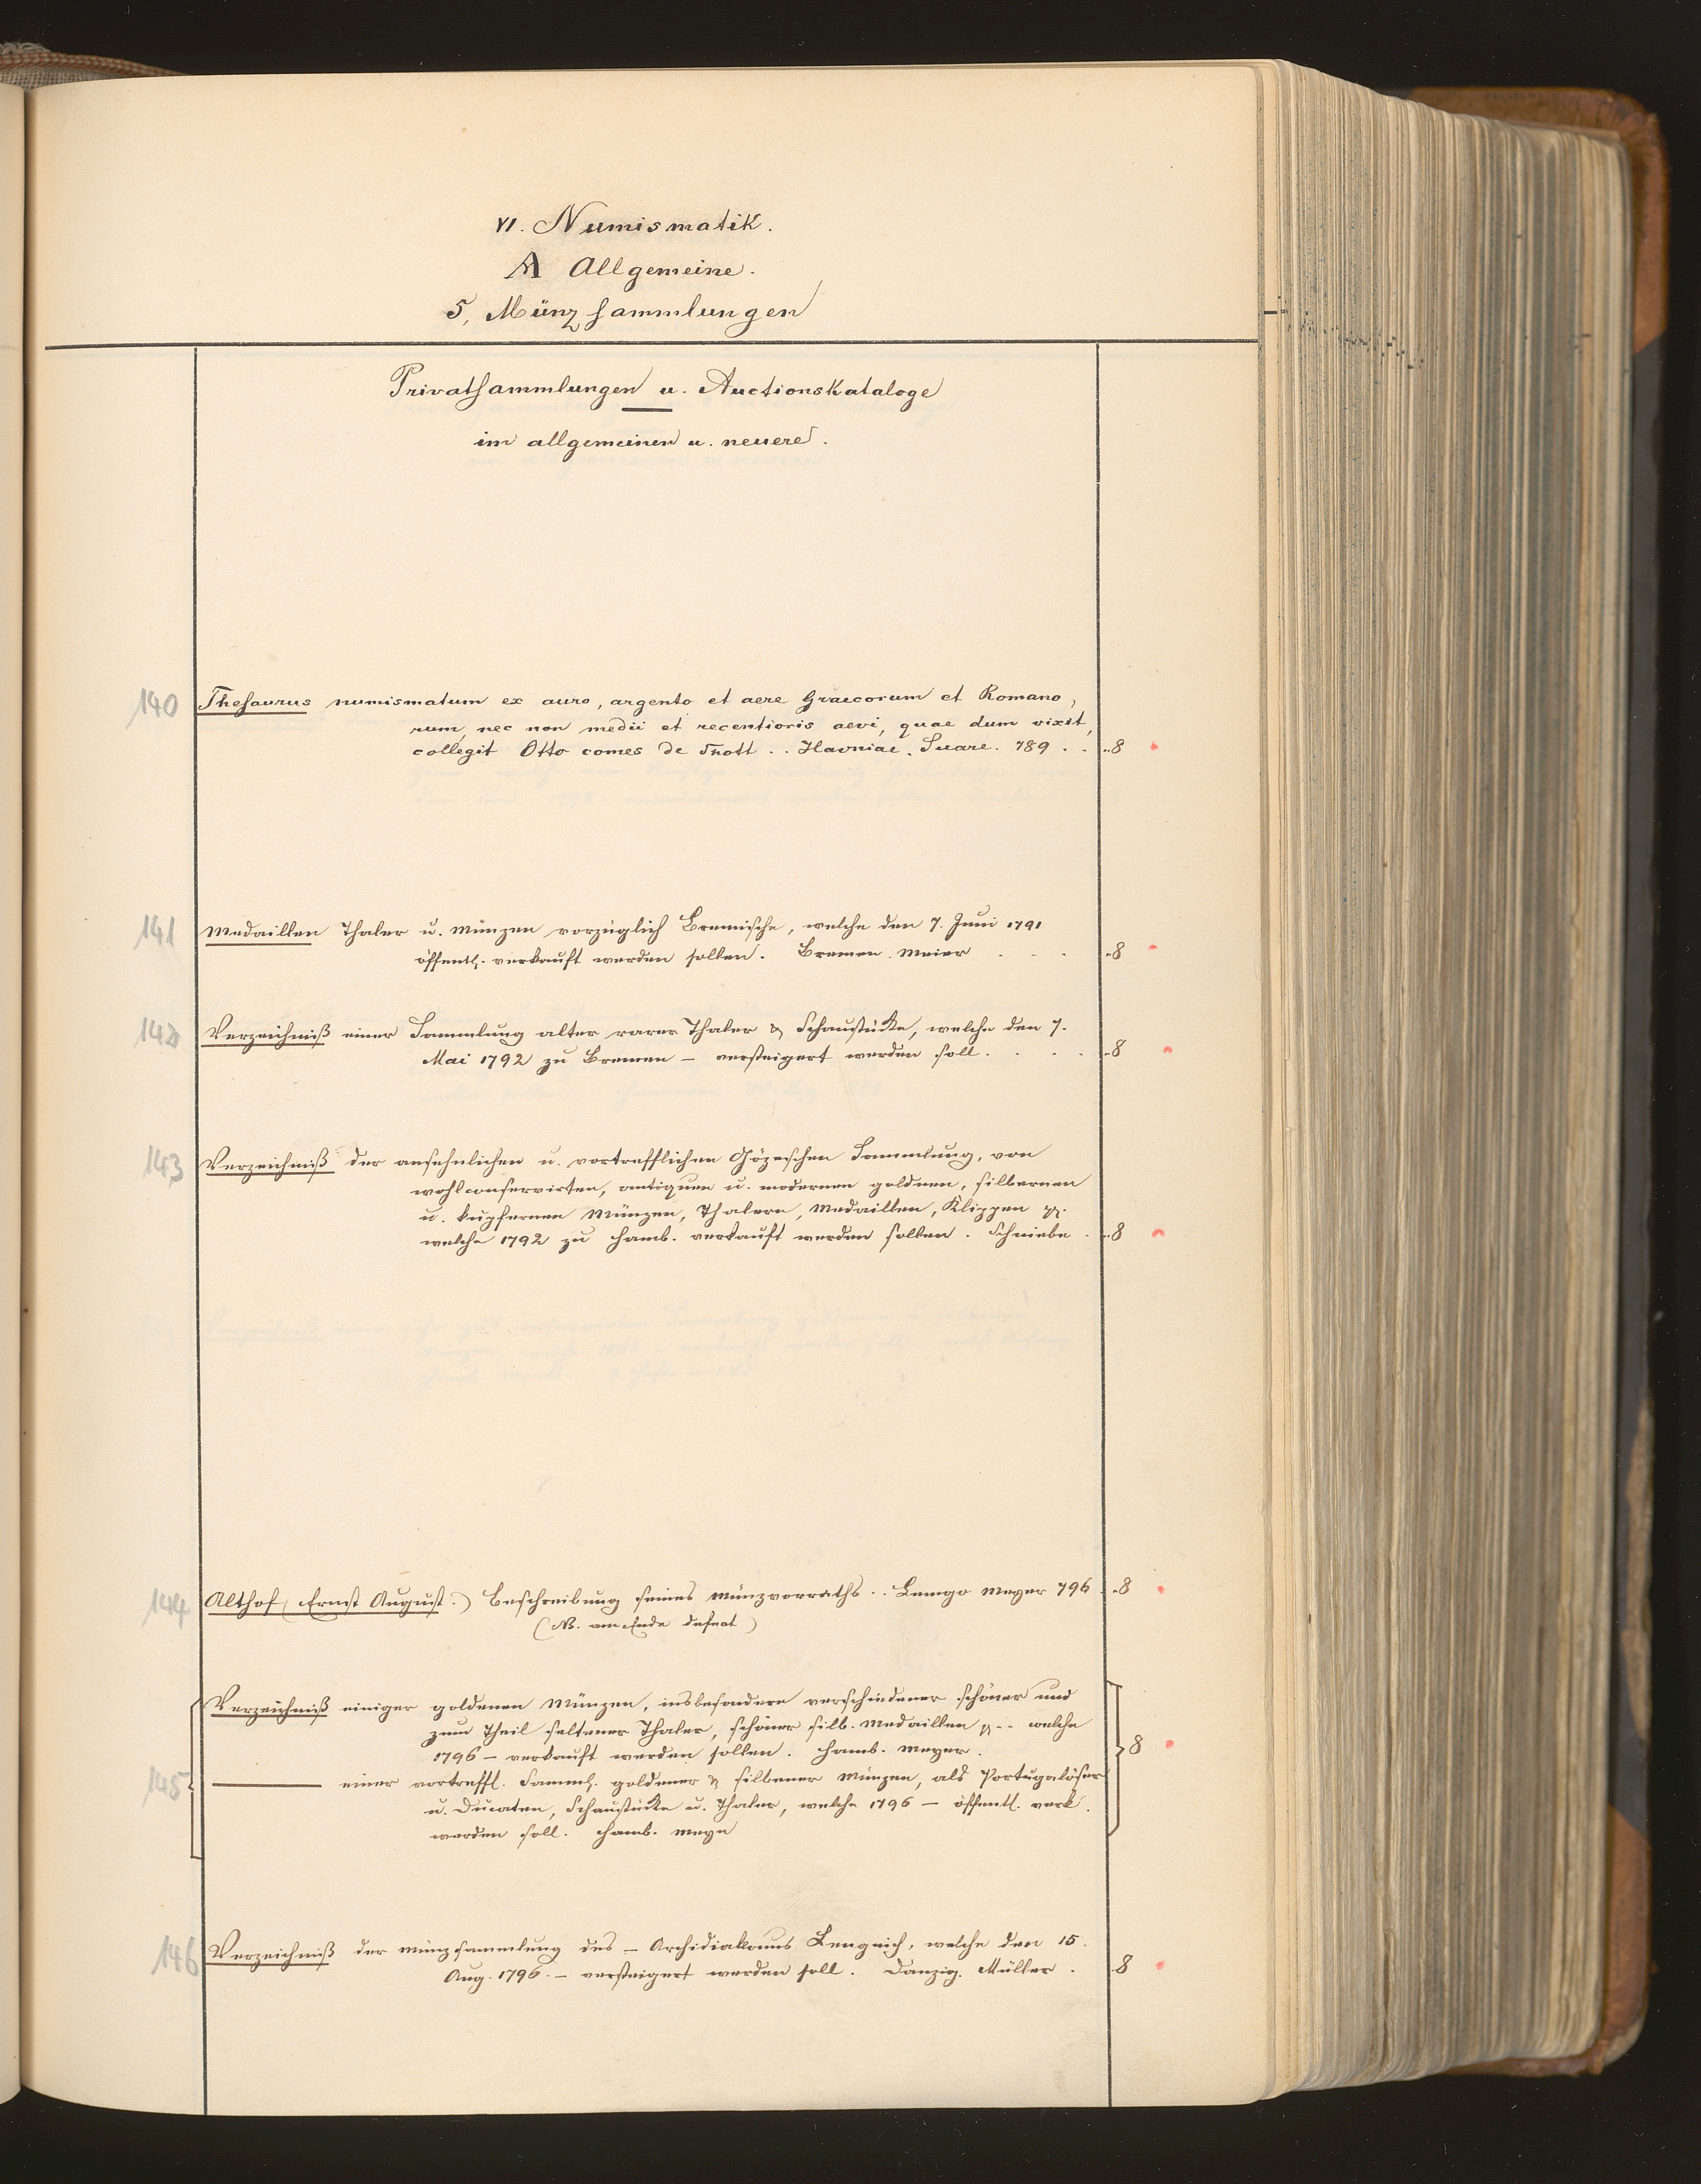 VI. Numismatik.
A Allgemeine.
5, Münzsammlungen
Privatsammlungen u. Auctionskataloge
im allgemeinen u. neuere.
140 Thesaurus numismatum ex auro, argento et aere Graecorum et Romano,
rum, nec non medii et recentioris aevi, quae dum vixit,
collegit Otto comes de Thott . . Havniae. Suare. 789 . . 8
141 Medaillen Thaler u. Münzen vorzüglich Bremische, welche den 7. Juni 1791
öffentl. verkauft werden sollen. Bremen. Meier . . . 8
142 Verzeichniß einer Sammlung alter rarer Thaler & Schaustücke, welche den 7.
Mai 1792 zu Bremen – versteigert werden soll. . . . 8
143 Verzeichniß der ansehnlichen u. vortrefflichen Gözeschen Sammlung, von
wohlconservirten, antiquen u. modernen goldnen, silbernen
u. kupfernen Münzen, Thalern, Medaillen, Klippen pp.
welche 1792 zu Hamb. verkauft werden sollen. Schniebe . 8
144 Althof (Ernst August.) Beschreibung seines Münzvorraths . . Lemgo Meyer 796 . 8
(NB. am Ende defect)
Verzeichniß einiger goldenen Münzen, insbesondere verschiedener schöner und
zum Theil seltener Thaler, schöner silb. Medaillen p - - welche
1796 – verkauft werden sollen. Hamb. Meyer. 8
145 ——— einer vortreffl. Samml. goldener & silberner Münzen, als Portugalöser
u. Ducaten, Schaustücke u. Thaler, welche 1796 – öffentl. verk.
werden soll. Hamb. Meyn
146 Verzeichniß der Münzsammlung des – Archidiakonus Lengnich, welche den 15.
Aug. 1796. – versteigert werden soll. Danzig. Müller . 8